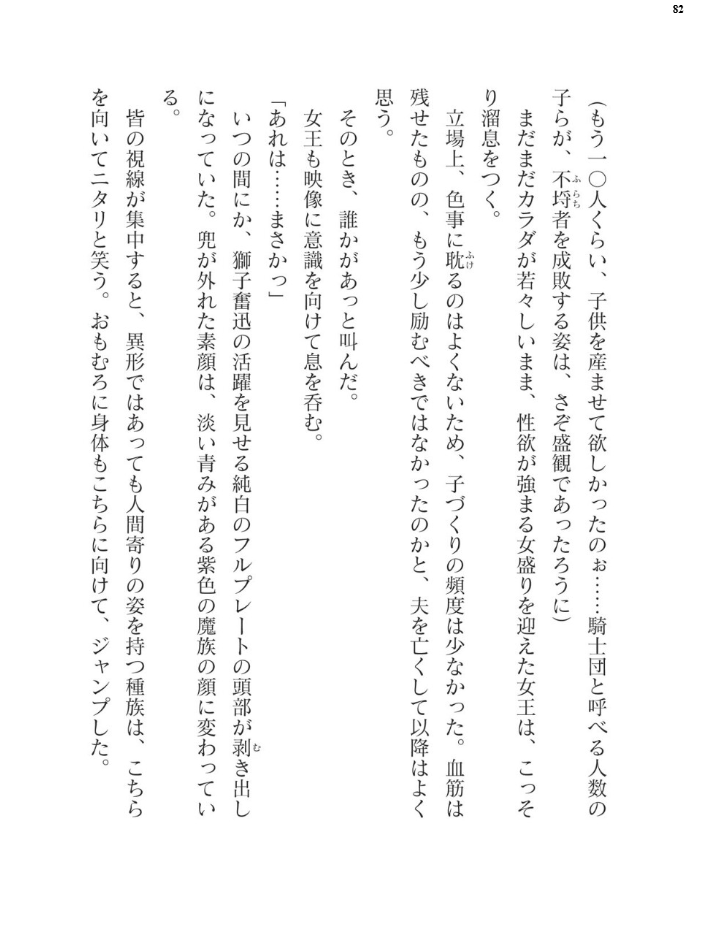 82
（もう一〇人くらい、子供を産ませて欲しかったのぉ……騎士団と呼べる人数の
子らが、不埒者を成敗する姿は、さぞ盛観であったろうに）
まだまだカラダが若々しいまま、性欲が強まる女盛りを迎えた女王は、こっそ
り溜息をつく。
立場上、色事に耽るのはよくないため、子づくりの頻度は少なかった。血筋は
残せたものの、もう少し励むべきではなかったのかと、夫を亡くして以降はよく
思う。
そのとき、誰かがあっと叫んだ。
女王も映像に意識を向けて息を呑む。
「あれは……まさかっ」
いつの間にか、獅子奮迅の活躍を見せる純白のフルプレートの頭部が剥き出し
になっていた。兜が外れた素顔は、淡い青みがある紫色の魔族の顔に変わってい
る。
皆の視線が集中すると、異形ではあっても人間寄りの姿を持つ種族は、こちら
を向いてニタリと笑う。おもむろに身体もこちらに向けて、ジャンプした。